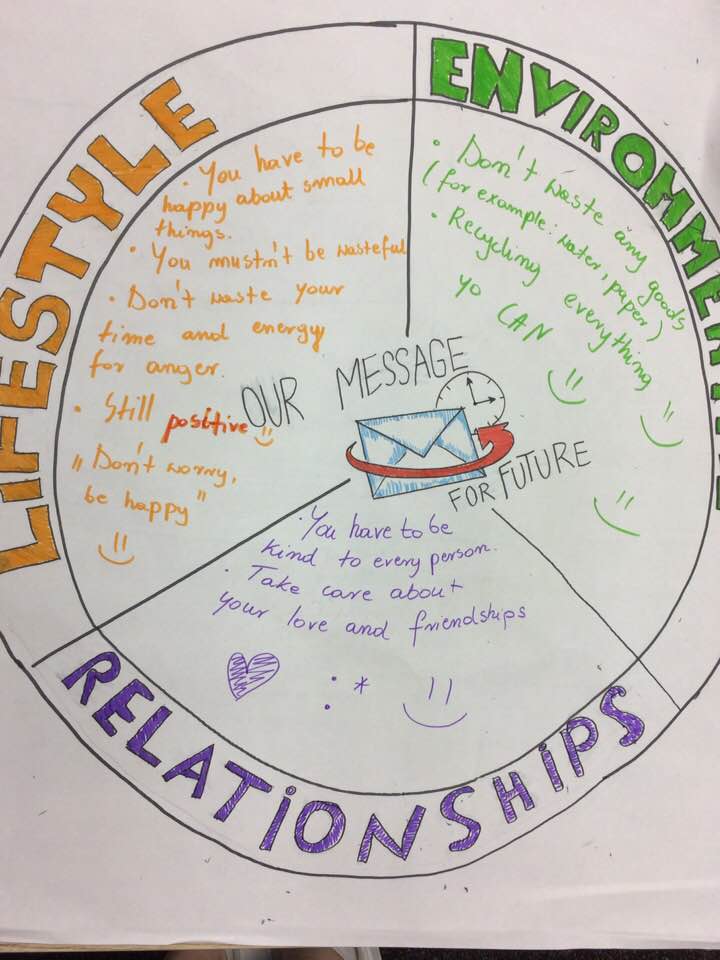 LIFESTYLE
• You have to be
happy about small
things.
• You mustn't be wasteful
• Don't waste your
time and energy
for anger.
• Still positive
"Don't worry,
be happy"
ENVIROMMENT
• Don't waste any goods
(for example: water, paper)
• Recycling everything
yo CAN
OUR MESSAGE
FOR FUTURE
• You have to be
kind to every person.
• Take care about
your love and friendships
: *
RELATIONSHIPS